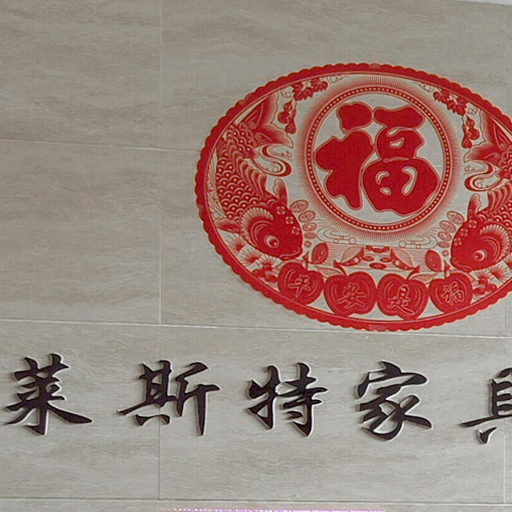 福
平安是福
莱斯特家具